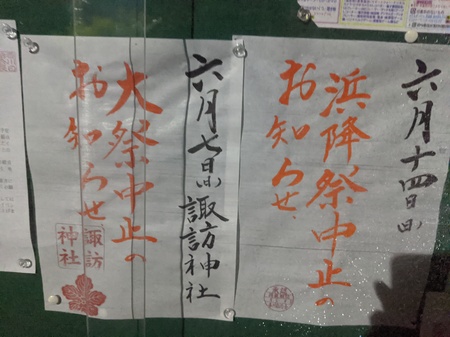 六月十四日㈰
浜降祭中止の
お知らせ
六月七日㈰諏訪神社
大祭中止の
お知らせ
諏訪
神社